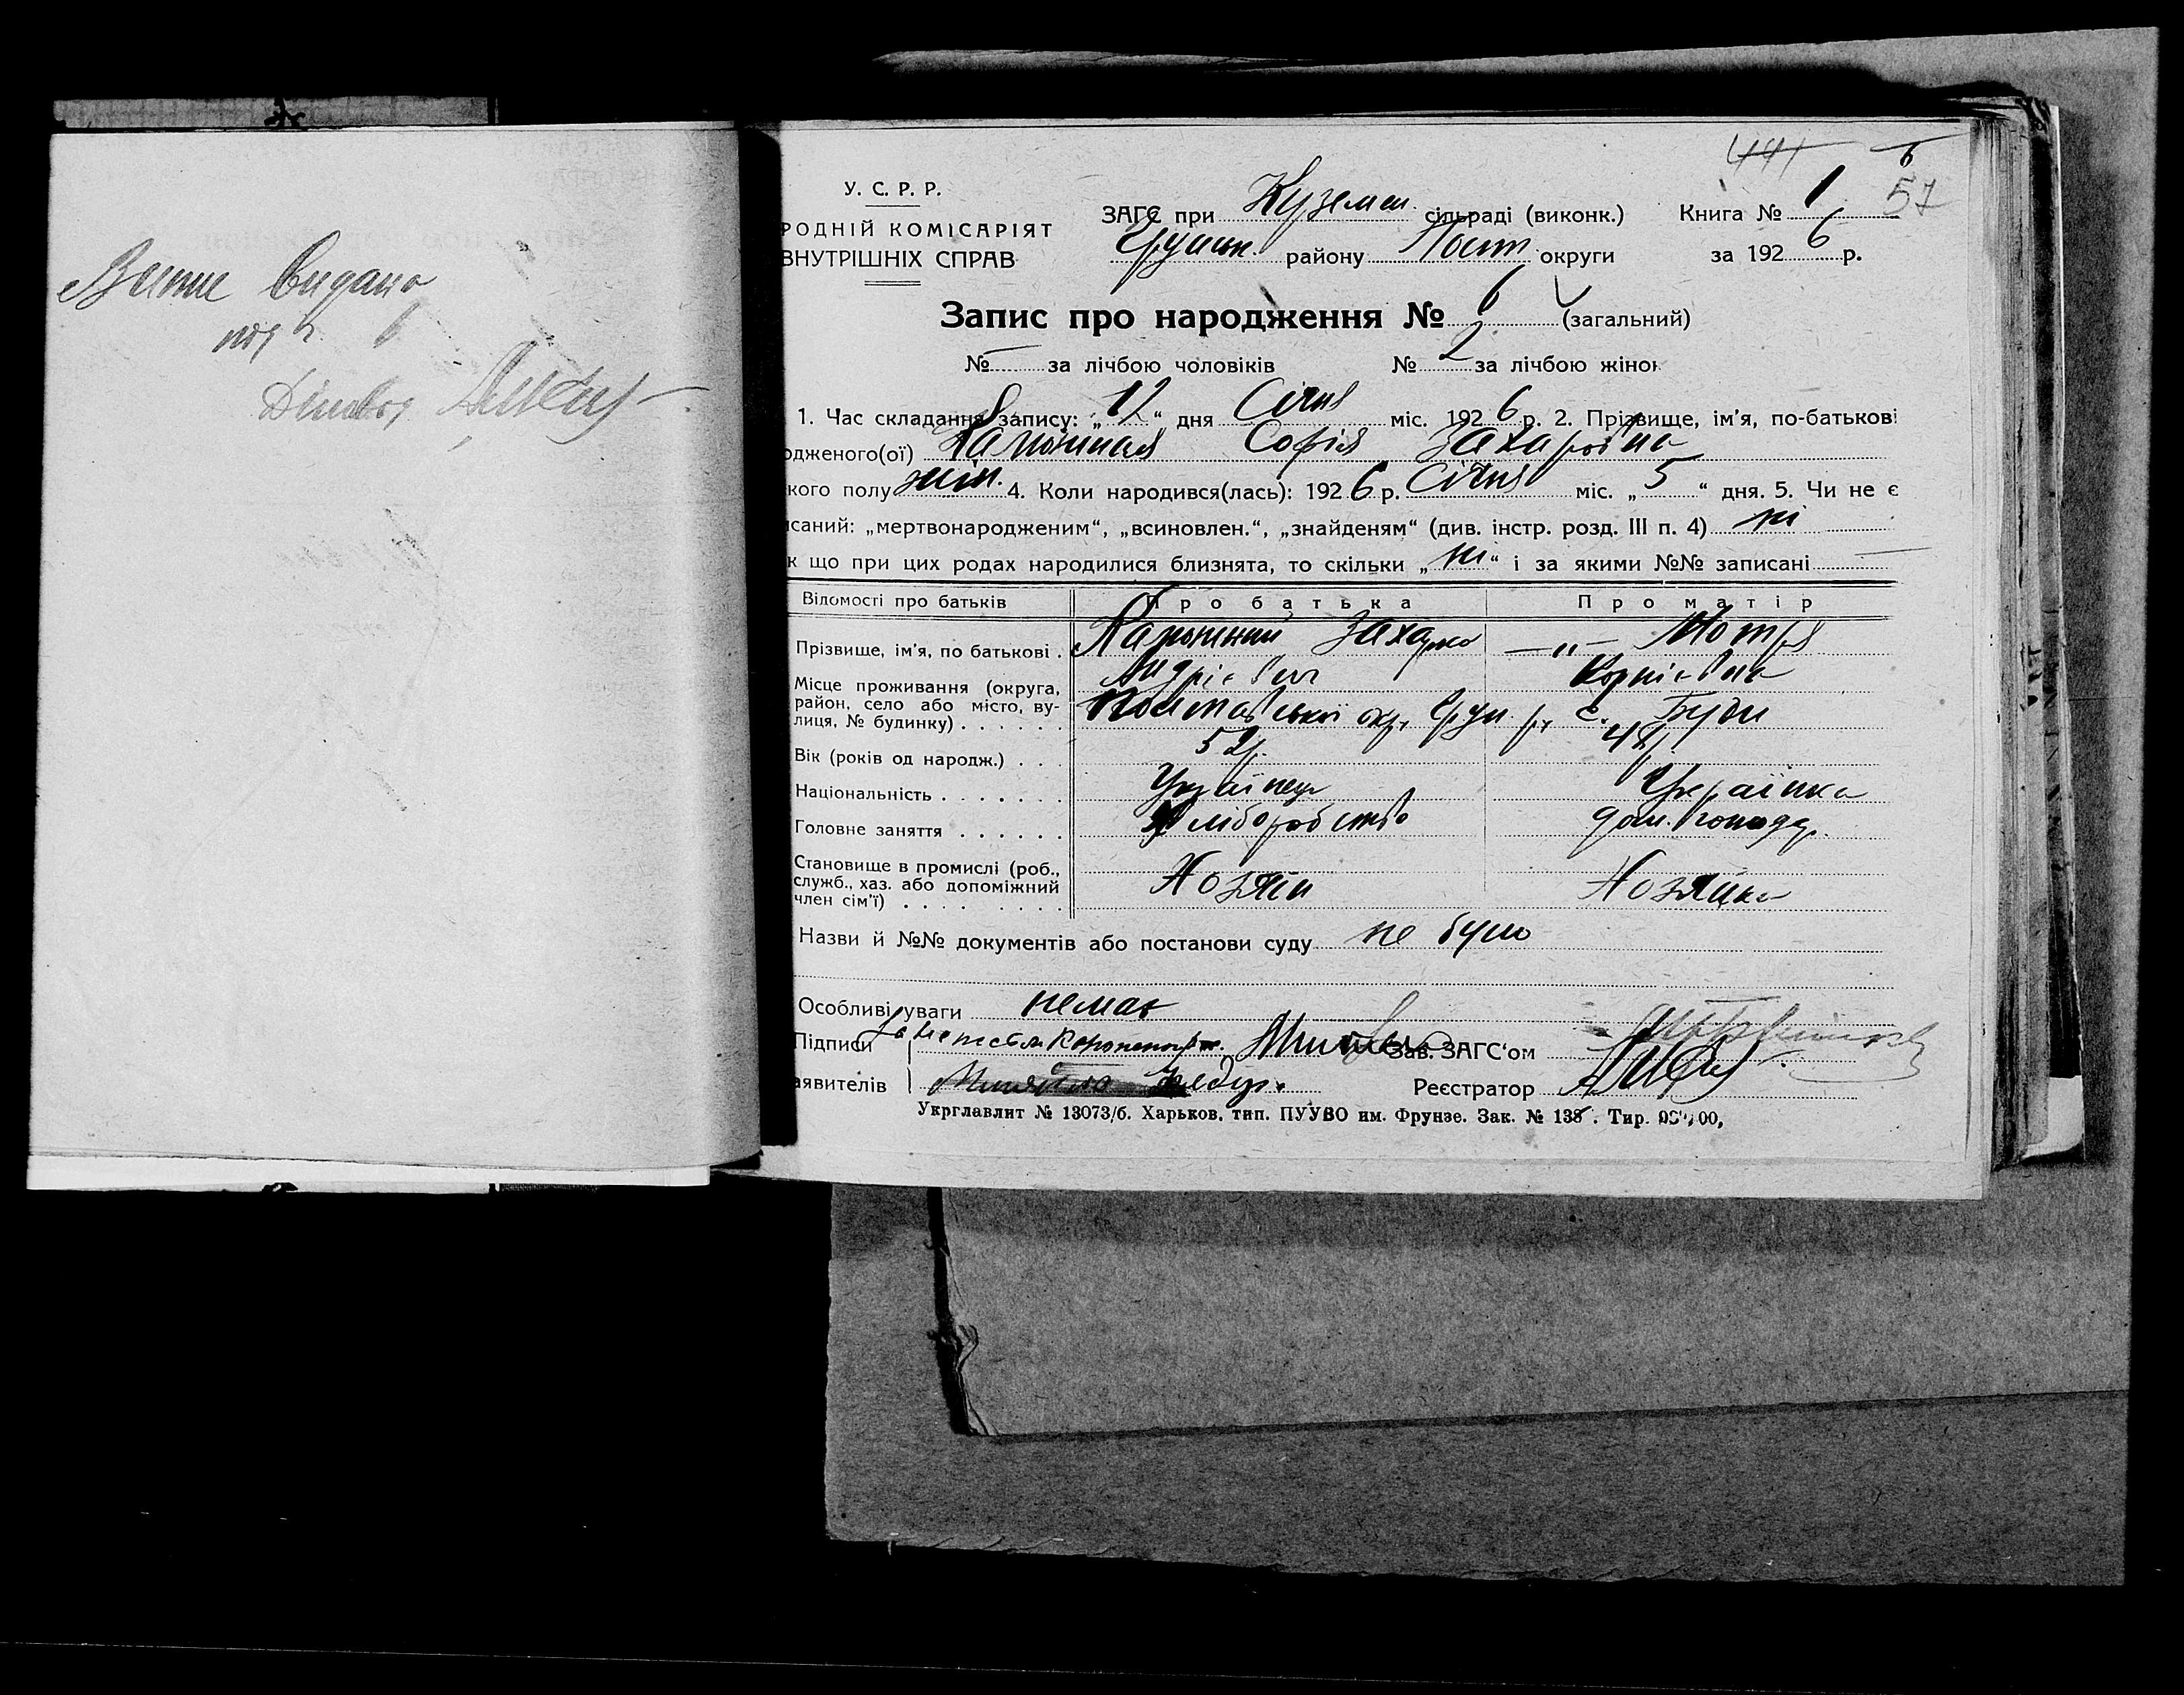 видано
під № 6
441 6
57
У. С. Р. Р.
РОДНІЙ КОМІСАРІЯТ
ВНУТРІШНІХ СПРАВ
ЗАГС при Куземен. сільраді (виконк.) Книга № 1
Грунськ. району Полт. округи за 1926 р.
Запис про народження № 6 (загальний)
№ — за лічбою чоловіків № 2 за лічбою жінок
1. Час складання запису: „12“ дня Січня міс. 1926 р. 2. Прізвище, ім'я, по-батькові
одженого(ої) Софія Захаровна
кого полу жін. 4. Коли народився(лась): 1926 р. Січня міс. „5“ дня. 5. Чи не є
исаний: „мертвонародженим“, „всиновлен.“, „знайденям“ (див. інстр. розд. III п. 4) ні
к що при цих родах народилися близнята, то скільки „ні“ і за якими №№ записані —
Відомості про батьків Про батька Про матір
Прізвище, ім'я, по батькові . Захарко Андрієвич —„— Мотря Корнієвна
Місце проживання (округа, район, село або місто, вулиця, № будинку) . . . . . . Полтавської окр. Грун. р. с. Буди
Вік (років од народж.) . . . 52 р. 42 р.
Національність . . . . . . . Українець Українка
Головне заняття . . . . . . Хліборобство дом. господар.
Становище в промислі (роб., служб., хаз. або допоміжний член сім'ї) . . . . . . . . Хозяїн Хозяйка
Назви й №№ документів або постанови суду не було
Особливі уваги немає
Підписи
Зав. ЗАГС'ом
аявителів
Реєстратор
Укрглавлит № 13073/б. Харьков, тип. ПУУВО им. Фрунзе. Зак. № 138 . Тир.